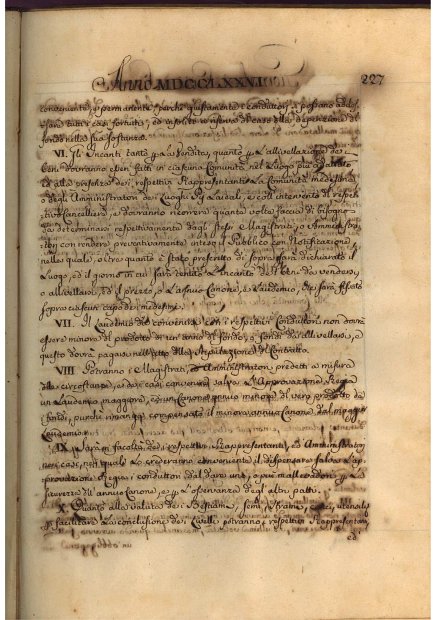 Anno MDCCLXXVI
227
conseguente, e permanente, perchè giustamente i Conduttori si possano addos-
sare tutti i casi fortuiti, ed in specie a riserva di caso della disperdizione di
fondo nella sua sostanza.
VI. Gl'Incanti tanto p la vendita, quanto p l'allivellazione de
beni dovranno esser fatti in ciascuna Comunità nel Luogo più adattato
ed alla presenza dei respettivi Rappresentanti la Comunità medesima
o degli Amministratori dei Luoghi Pij Laicali, e coll'intervento di respet-
tivo Cancelliere, e dovranno ricorrere quante volte faccia di bisogno
da determinarsi respettivamente dagli stessi Magistrati, o Amministra-
tori con rendere preventivamente inteso il Pubblico con Notificazione
nella quale, oltre quanto è stato prescritto di sopra sarà dichiarato il
Luogo, ed il giorno in cui sarà tentato l'Incanto dei Beni da vendersi,
o allivellarsi, ed il prezzo, o l'annuo Canone, e Laudemio, che sarà fissato
sopra ciascun capo dei medesimi.
VII. Il Laudemio da convenirsi con i respettivi Conduttori non dovrà
essere minore del prodotto di un anno di fondo, o fondi da allivellarsi, e
questo dovrà pagarsi nell'atto della Stipulazione del Contratto.
VIII Potranno i Magistrati, o Amministratori predetti a misura
delle circostanze, e dei casi convenire salva l'Approvazione Regia
un Laudemio maggiore, ed un Canone annuo minore di vero prodotto dei
fondi, purchè rimanga compensato il minore annuo Canone dal maggior
Laudemio.
IX Sarà in facoltà dei respettivi Rappresentanti, ed Amministratori
nei casi, nei quali lo crederanno conveniente il dispensare salva l'ap-
provazione Regia i conduttori dal dare uno, o più mallevadori p la
sicurezza dell'annuo Canone, e p l'osservanza degli altri patti.
X Quanto alla valuta dei Bestiami, semi, Strami, conci, utensili
p facilitare la conclusione dei Livelli potranno i respettivi Rappresentanti,
ed